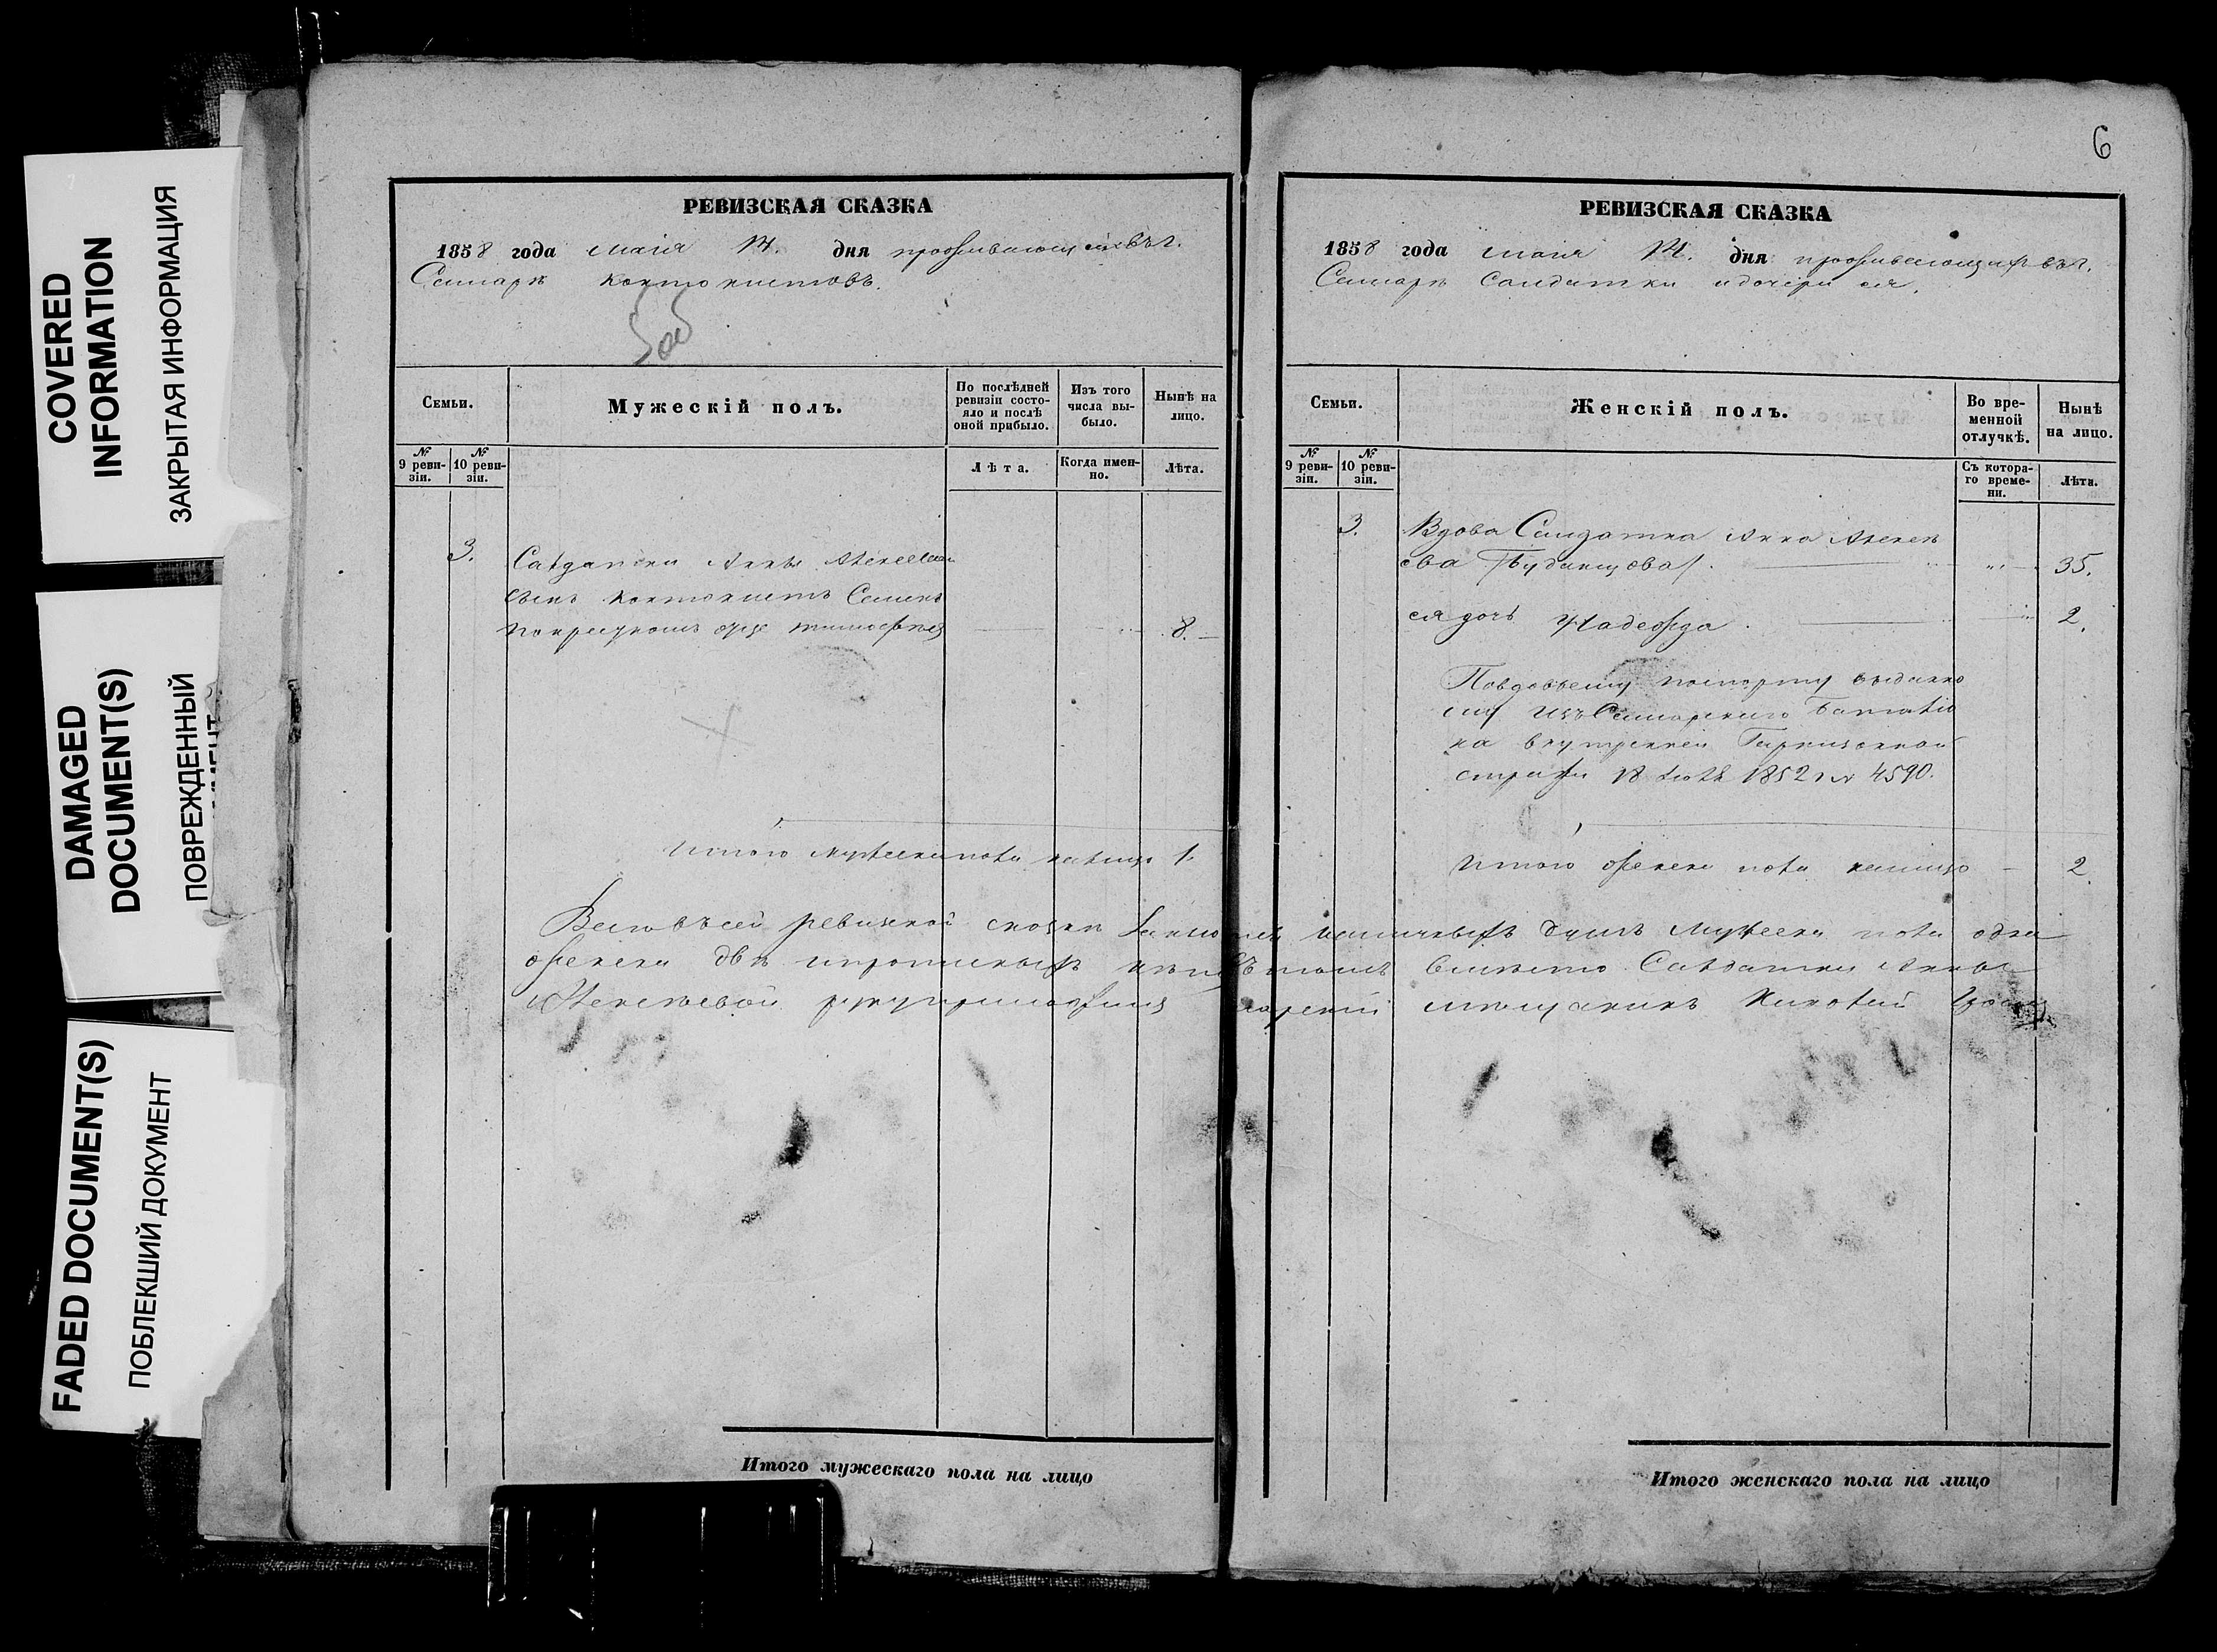 COVERED
INFORMATION
ЗАКРЫТАЯ ИНФОРМАЦИЯ
DAMAGED
DOCUMENT(S)
ПОВРЕЖДЕННЫЙ
FADED DOCUMENT(S)
ПОБЛЕКШИЙ ДОКУМЕНТ
РЕВИЗСКАЯ СКАЗКА
1858 года маія дня проживающихъ въ г.
Самарѣ кантонистовъ.
Семьи.
Мужескій полъ.
По послѣдней
ревизіи состо-
яло и послѣ
оной прибыло.
Изъ того
числа вы-
было.
Нынѣ на
лицо.
№
9 реви-
зіи.
№
10 реви-
зіи.
Лѣта.
Когда имен-
но.
Лѣта.
3. Салдатки Анны Алексеевой
сынъ кантонистъ Семенъ
по крестному отцу Тимофеевъ 8.
Итого мужеска пола налицо 1.
Итого мужескаго пола на лицо
6
РЕВИЗСКАЯ СКАЗКА
1858 года маія дня проживающихъ въ г.
Самарѣ Салдатки и дочери ея.
Семьи.
Женскій полъ.
Во вре-
менной
отлучкѣ.
Нынѣ
на лицо.
№
9 реви-
зіи.
№
10 реви-
зіи.
Съ котора-
го време-
ни.
Лѣта.
3. Вдова Салдатка Анна Алексѣ
ева 35.
ея дочь Надежда. 2.
По вдовьему паспорту выданно
му изъ Самарскаго Баталіо
на внутренней Гарнизонной
стражи 18 1852 г № 4590.
Итого женска пола налицо 2.
Всего въ сей ревизской сказкѣ наличныхъ душъ мужеска пола одна
женска двѣ и прописныхъ нѣтъ въ томъ вмѣсто Салдатки Анны
Алексѣевой руку приложилъ мещанинъ
Итого женскаго пола на лицо